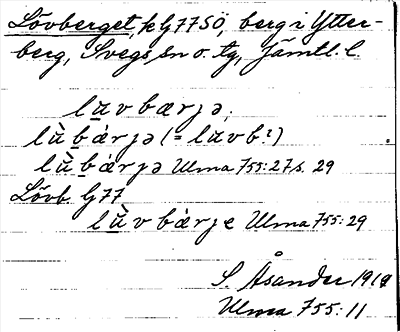 Lövberget, k G77SÖ, berg i Ytter-
berg, Svegs sn o. tg, Jämtl. l.
lavbærjə;
lùbæ̀rjə (= lavb?)
lùbæ̀rjə Ulma 755:27 s. 29
Lövb. G77
lùvbæ̀rje Ulma 755:29
S. Åsander 1919
Ulma 755:11